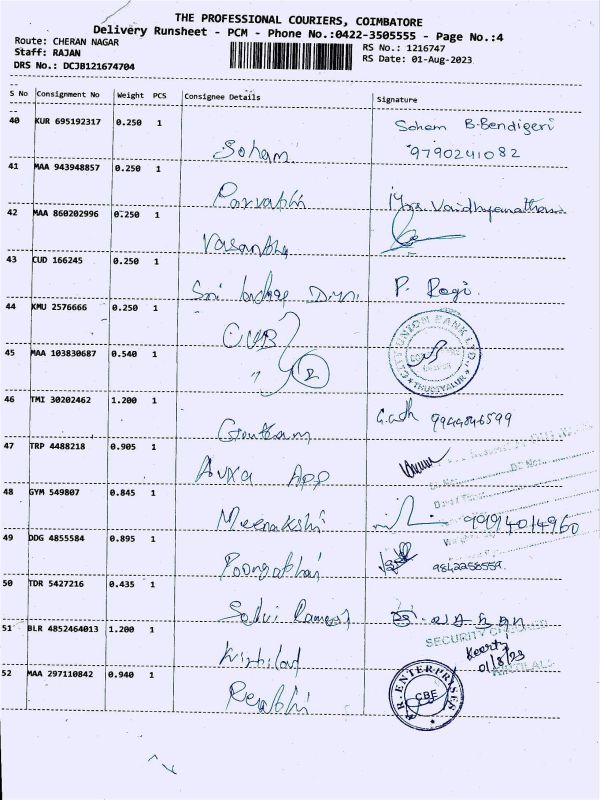 THE PROFESSIONAL COURIERS, COIMBATORE
Delivery Runsheet - PCM - Phone No.:0422-3505555 - Page No.:4
Route: CHERAN NAGAR
Staff: RAJAN
DRS No.: DCJB121674704
RS No.: 1216747
RS Date: 01-Aug-2023
S No Consignment No Weight PCS Consignee Details Signature
40 KUR 695192317 0.250 1 Soham Soham B. Bendigeri
9790241082
41 MAA 943948857 0.250 1 Parvathi Mrs. Vaidhyanathan
42 MAA 860202996 0.250 1 Vasantha
43 CUD 166245 0.250 1 Sri P. Ragi.
44 KMU 2576666 0.250 1 CUB CITY UNION BANK LTD.,
45 MAA 103830687 0.540 1 " 2 THUDIYALUR
46 TMI 30202462 1.200 1 Goutham 9944846599
47 TRP 4488218 0.905 1 App
48 GYM 549807 0.845 1 Meenakshi 99914014960
49 DDG 4855584 0.895 1 9842256559.
50 TDR 5427216 0.435 1 Selvi
SECURITY CHECKED
51 BLR 4852464013 1.200 1 Keerthi
01/8/23
52 MAA 297110842 0.940 1 Revathi R. ENTERPRISES
CBE